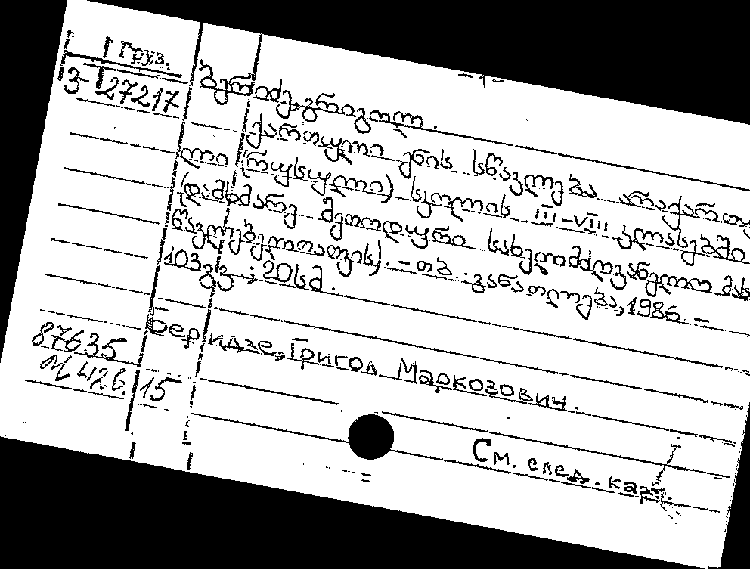 Груз.
3-27217
ბერიძე, გრიგოლ.
ქართული ენის სწავლება არაქართუ
ლი (რუსული) სკოლის III-VIII კლასებში
(დამხმარე მეთოდური სახელმძღვანელო მას
წავლებელთათვის). - თბ.: განათლება, 1986. -
103გვ.; 20სმ.
Беридзе, Григол Маркозович.
87635
15
См. след. карт.